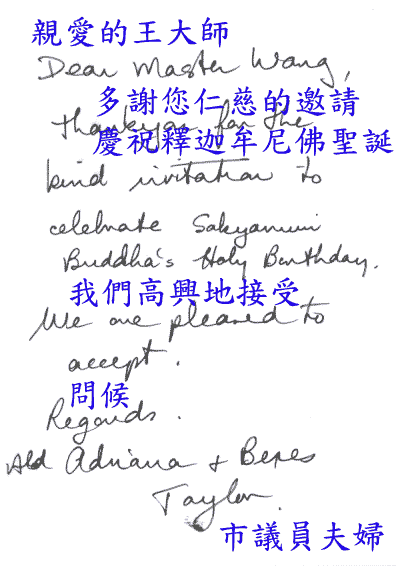 親愛的王大師
Dear Master Wang,
多謝您仁慈的邀請
thankyou for the
慶祝釋迦牟尼佛聖誕
kind invitation to
celebrate Sakyamuni
Buddha's Holy Birthday.
我們高興地接受
We are pleased to
accept.
問候
Regards.
Ald Adriana + Beres
Taylor.
市議員夫婦